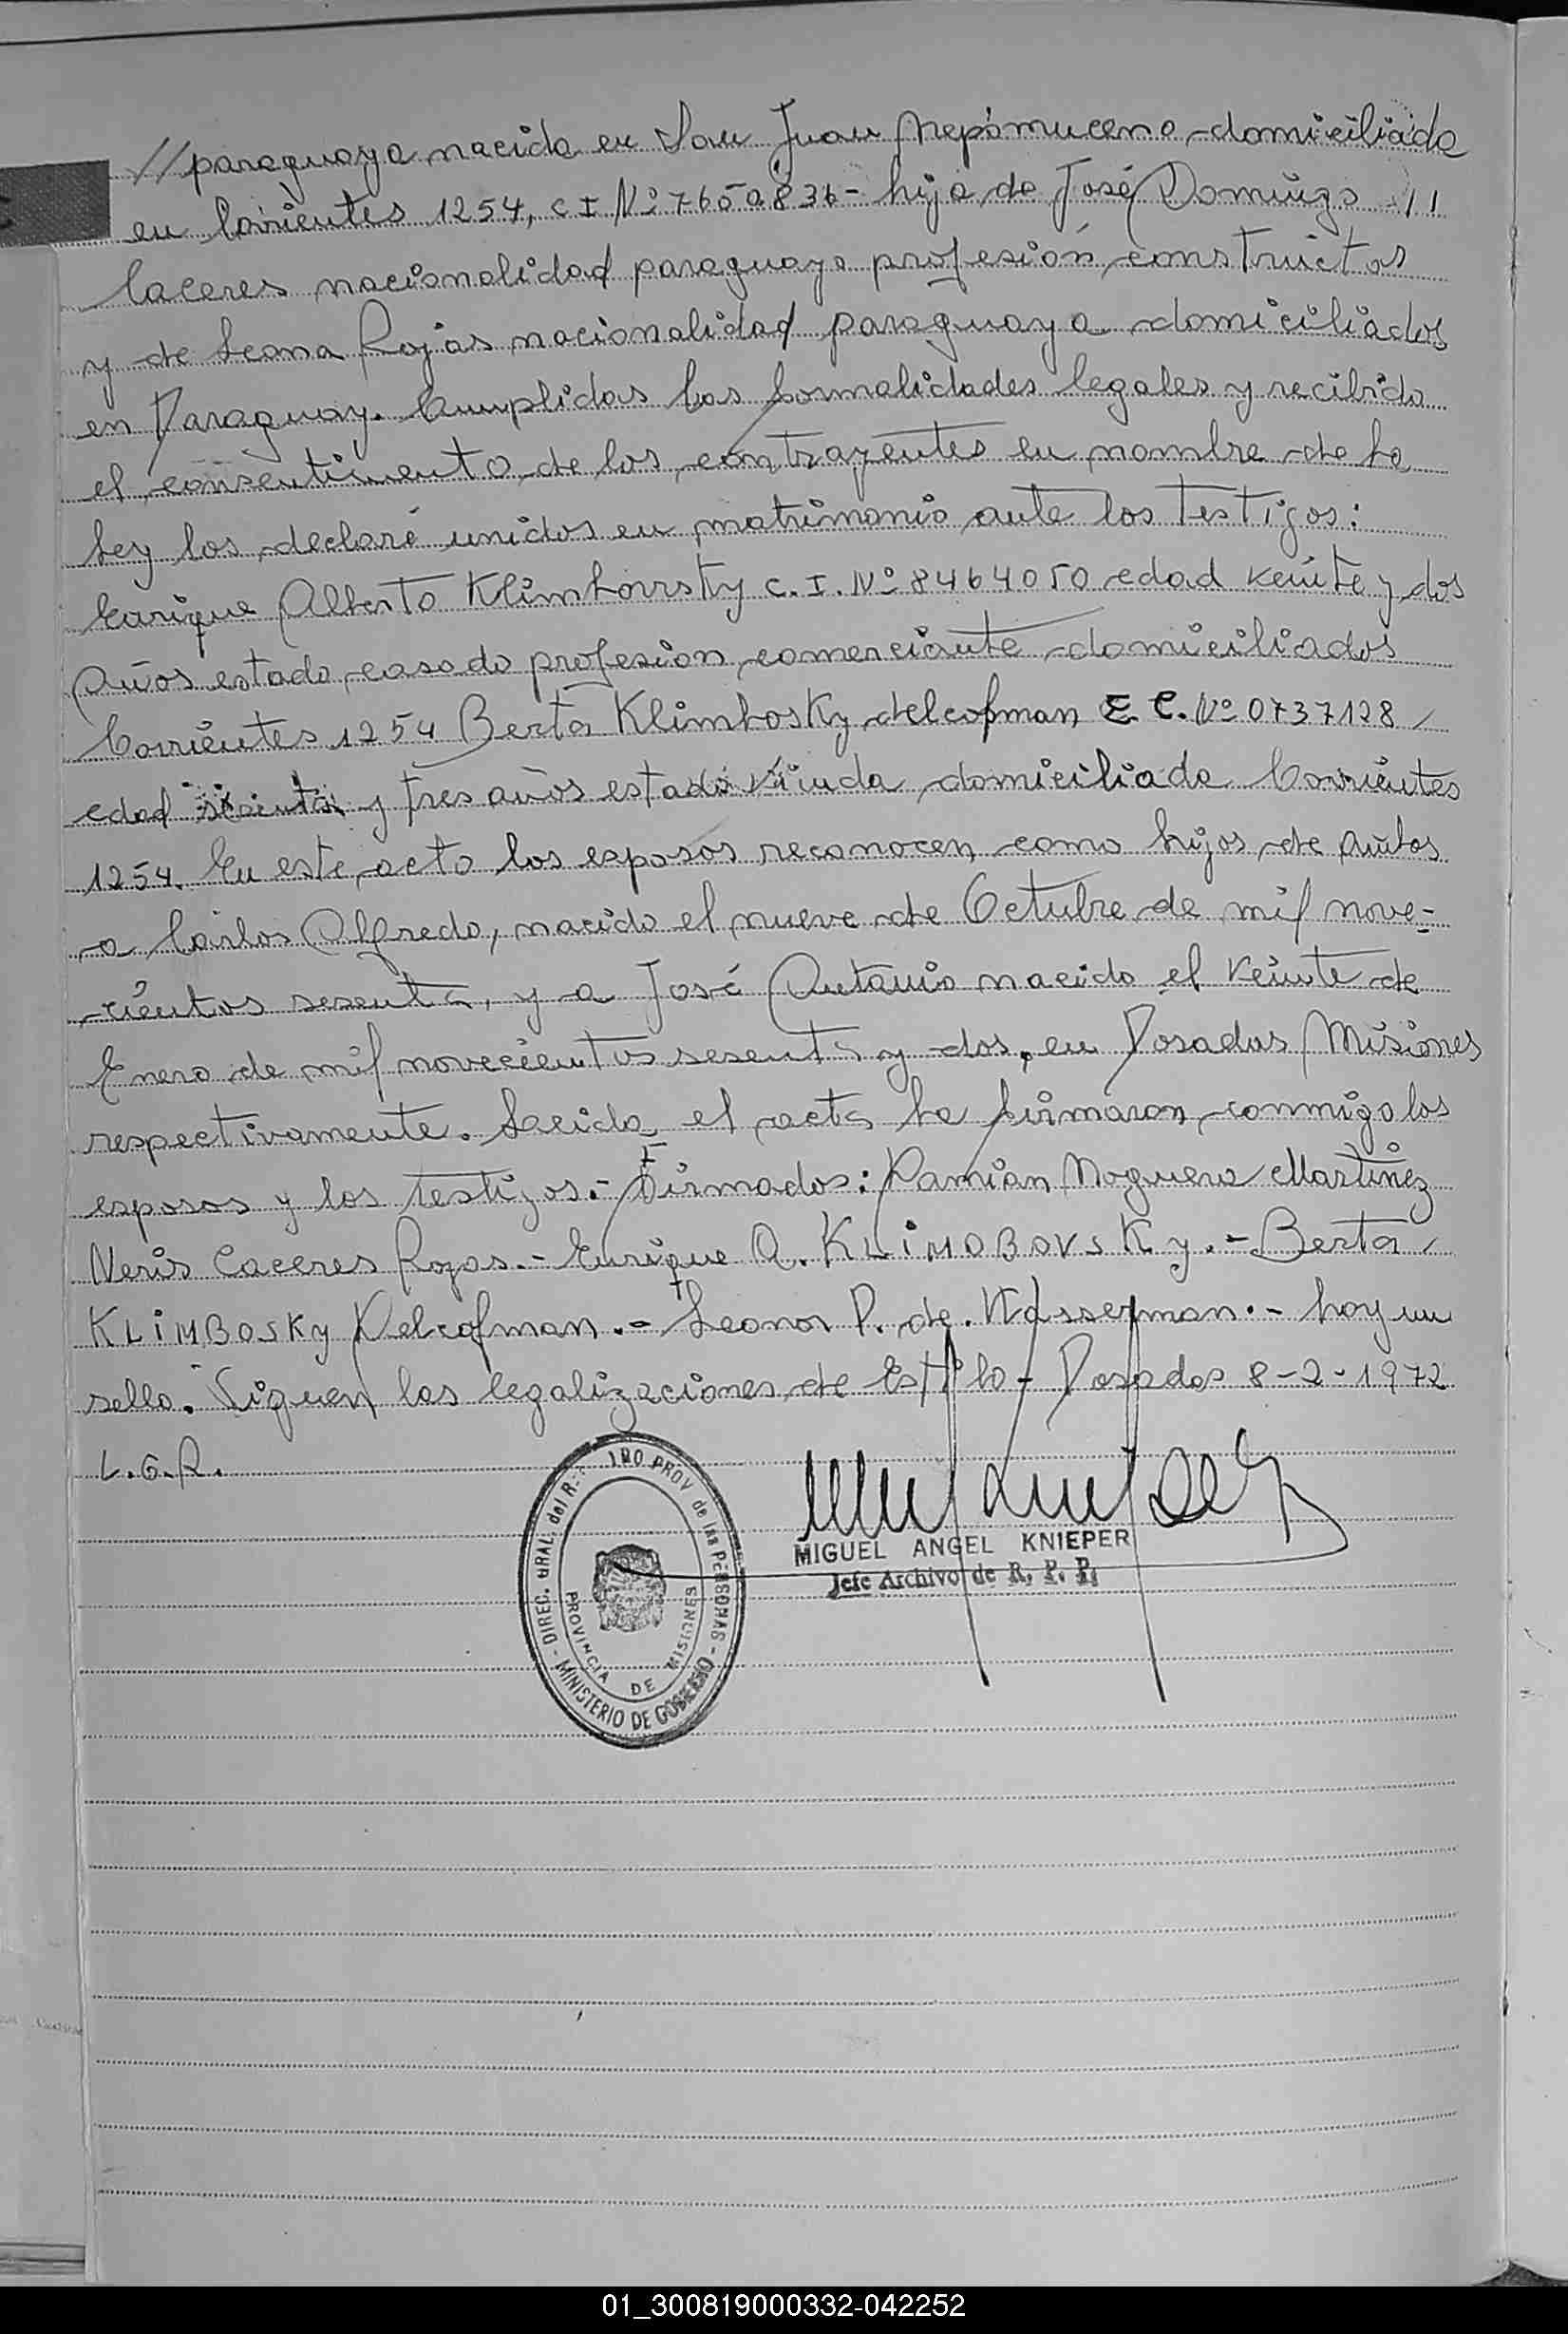 // paraguaya nacida en San Juan Nepomuceno domiciliada
en Corrientes 1254, C I Nº 7650836 - hija de José Domingo //
Caceres nacionalidad paraguaya profesión constructor
y de Leona Rojas nacionalidad paraguaya domiciliados
en Paraguay. Cumplidas las formalidades legales y recibido
el consentimiento de los contrayentes en nombre de la
Ley los declaré unidos en matrimonio ante los testigos:
Enrique Alberto Klimbovsky C.I. Nº 8464050 edad veinte y dos
años estado casado profesion comerciante domiciliados
Corrientes 1254 Berta Klimbosky delcofman E. C. Nº 0737128
edad y tres años estado viuda domiciliada Corrientes
1254. En este acto los esposos reconocen como hijos de ambos
a Carlos Alfredo, nacido el nueve de Octubre de mil nove-
cientos sesenta, y a José Antonio nacido el veinte de
Enero de mil novecientos sesenta y dos, en Posadas Misiones
respectivamente. Leida el acta la firmaron conmigo los
esposos y los testigos.- Firmados: Damian Noguera Martinez
Neris Caceres Rojas.- Enrique A. KLIMOBOVSKy.- Berta
KLIMBOSKy Delcofman.- Leonor P. de Wasserman.- hay un
sello. Siguen las legalizaciones de Estilo - Posadas 8-2-1972
L.G.R.
DIREC. GRAL. del R. PROV de las PERSONAS - MINISTERIO DE GOBIERNO -
PROVINCIA DE MISIONES
MIGUEL ANGEL KNIEPER
Jefe Archivo de R. P. P.
01_300819000332-042252